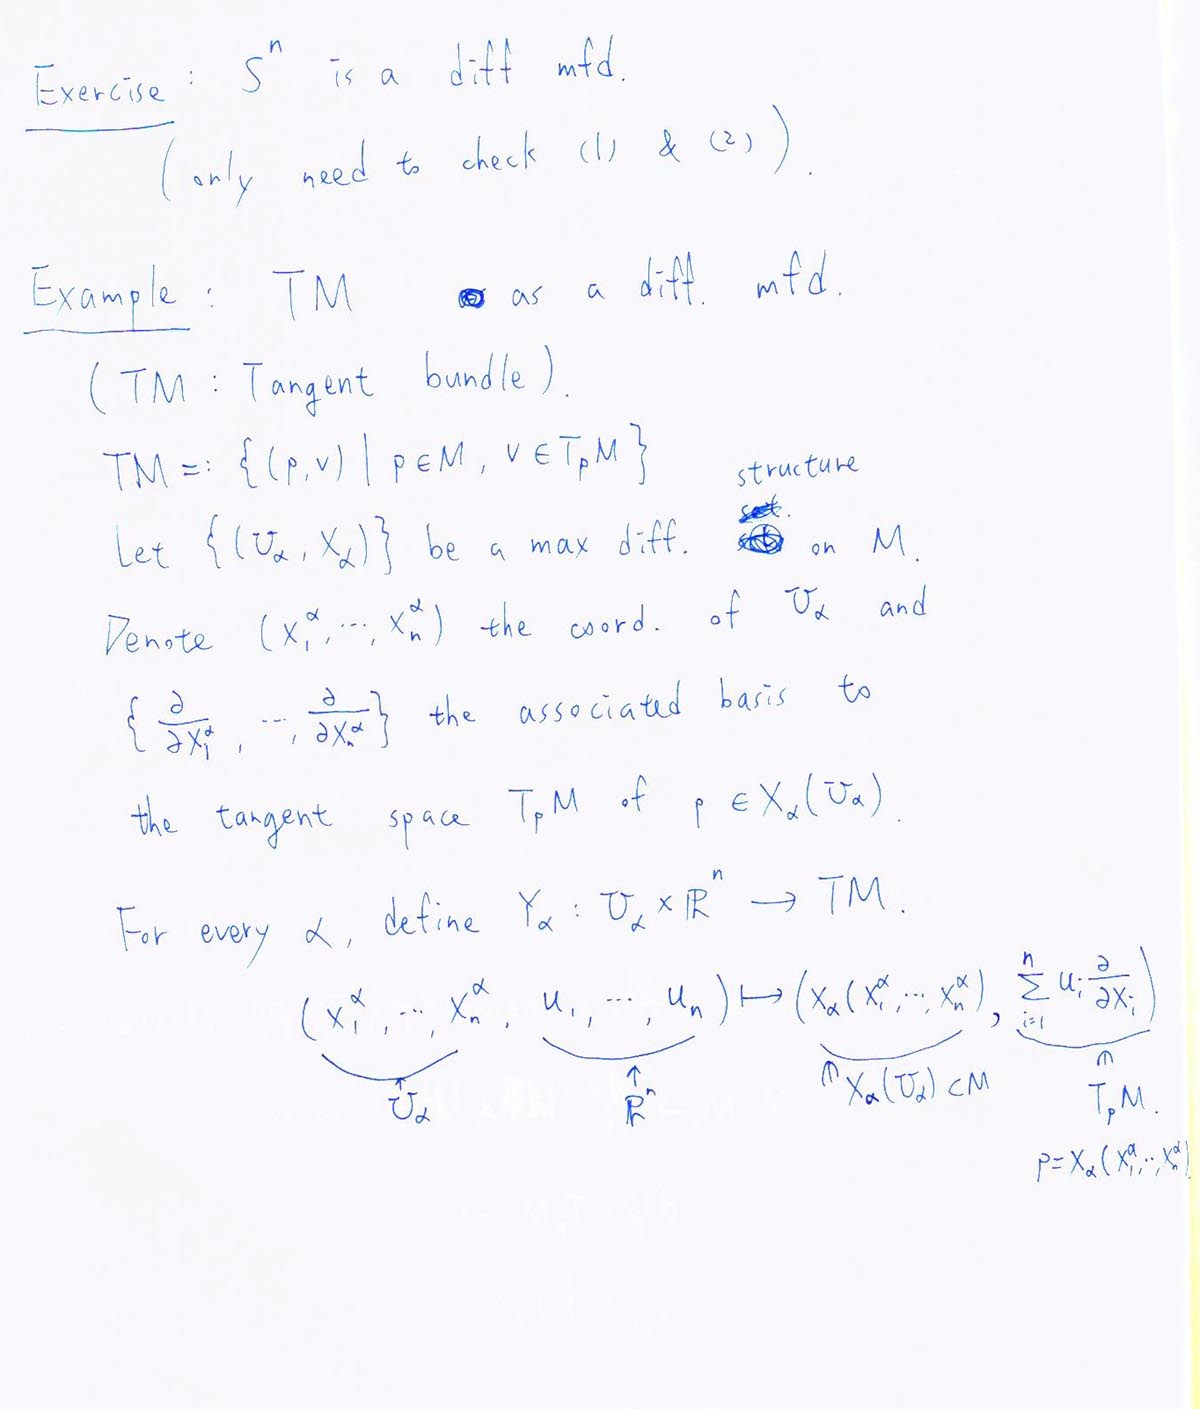 Exercise : Sⁿ is a diff mfd.
(only need to check (1) & (2)).
Example : TM as a diff. mfd.
(TM : Tangent bundle).
TM =: {(p,v) | p ∈ M, v ∈ T_pM}
structure
Let {(U_α, X_α)} be a max diff. on M.
Denote (x₁^α, ..., x_n^α) the coord. of U_α and
{∂/∂x₁^α, ..., ∂/∂x_n^α} the associated basis to
the tangent space T_pM of p ∈ X_α(U_α).
For every α, define Y_α : U_α × ℝⁿ → TM.
(x₁^α, ..., x_n^α, u₁, ..., u_n) ↦ (X_α(x₁^α, ..., x_n^α), ∑_{i=1}^n u_i ∂/∂x_i)
↑ U_α ↑ ℝⁿ ∩ X_α(U_α) ⊂ M ∩ T_pM.
p = X_α(x₁^α, ..., x_n^α)